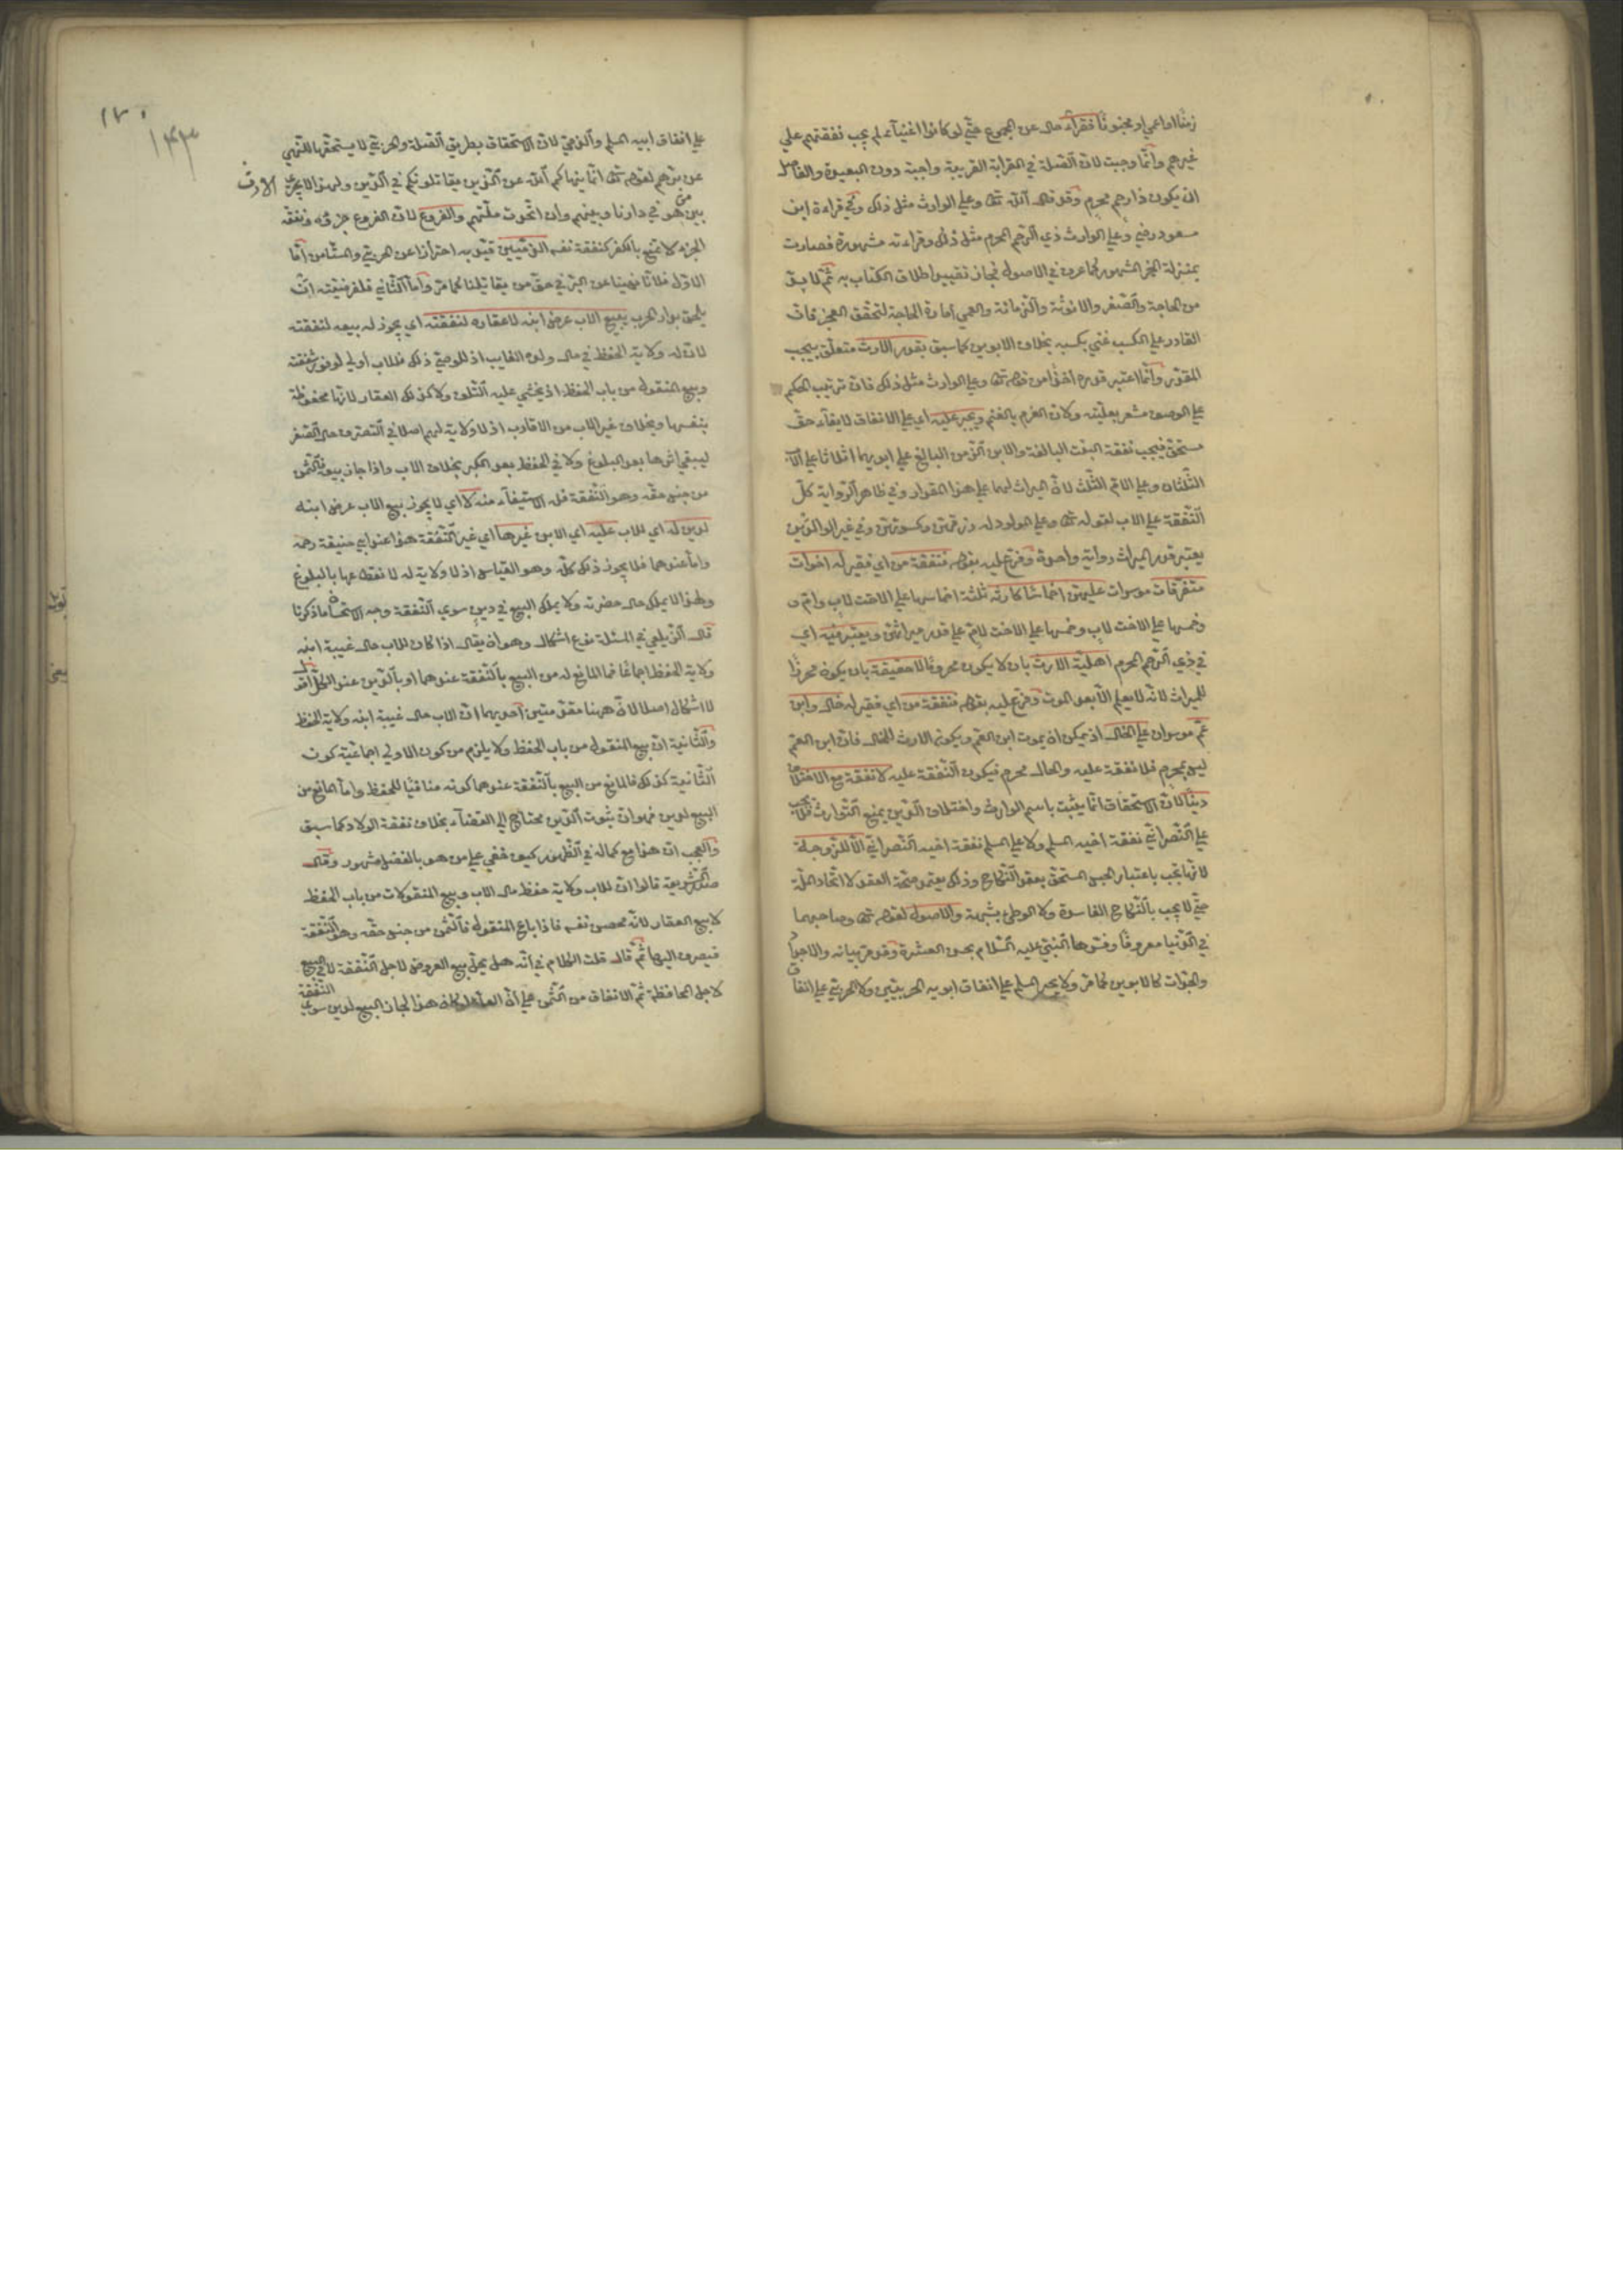 زمنا او اعمي او مجنونا فقراء حال عن المجموع حتي لو كانوا اغنياء لم يجب نفقتهم علي
غيرهم وانما وجبت لان الصلة في القرابة القريبة واجبة دون البعيدة والفاصل
ان يكون ذا رحم محرم وقد قال الله تعا وعلي الوارث مثل ذلك وفي قراءة ابن
مسعود رضي وعلي الوارث ذي الرحم المحرم مثل ذلك وقراءته مشهورة فصارت
بمنزلة الخبر المشهور كما عرف في الاصول فجاز تقييد اطلاق الكتاب به ثم لا بد
من الحاجة والصغر والانوثة والزمانة والعمي امارة الحاجة لتحقق العجز فان
القادر علي الكسب غني بكسبه بخلاف الابوين كما سبق بقدر الارث متعلق بيجب
المقدر وانما اعتبر قدره اخذا من قوله تعا وعلي الوارث مثل ذلك فان ترتيب الحكم
علي الوصف مشعر بعليته ولان الغرم بالغنم ويجبر عليه اي علي الانفاق لايفاء حق
مستحق فيجب نفقة البنت البالغة والابن الزمن البالغ علي ابويهما اثلاثا علي الاب
الثلثان وعلي الام الثلث لان الميراث لهما علي هذا المقدار وفي ظاهر الرواية كل
النفقة علي الاب لقوله تعا وعلي المولود له رزقهن وكسوتهن وفي غير الوالدين
يعتبر قدر الميراث رواية واحدة وفرع عليه بقوله فنفقة من اي فقير له اخوات
متفرقات موسرات عليهن اخماسا كارثه ثلثة اخماسها علي الاخت لاب وام و
وخمسها علي الاخت لاب وخمسها علي الاخت لام علي قدر ميراثهن ويعتبر فيه اي
في ذي الرحم المحرم اهلية الارث بان لا يكون محروما لا حقيقة بان يكون محرزا
للميراث لانه لا يعلم الا بعد الموت وفرع عليه بقوله فنفقة من اي فقير له خال وابن
عم موسران علي الخال اذ يمكن ان يموت ابن العم ويكون الارث للخال فان ابن العم
ليس بمحرم فلا نفقة عليه والخال محرم فيكون النفقة عليه لا نفقة مع الاختلاف
دينا لان الاستحقاق انما يثبت باسم الوارث واختلاف الدين يمنع التوارث فلا يجب
علي النصراني نفقة اخيه المسلم ولا علي المسلم نفقة اخيه النصراني الا للزوجة
لانها تجب باعتبار الحبس المستحق بعقد النكاح وذلك يعتمد صحة العقد لا اتحاد الملة
حتي لا يجب بالنكاح الفاسد ولا الوطئ بشبهة والاصول لقوله تعا وصاحبهما
في الدنيا معروفا وفسرها النبي عليه السلام بحسن العشرة وقد مر بيانه والاجداد
والجدات كالابوين كما مر ولا يجبر المسلم علي انفاق ابويه الحربيين ولا الحربي علي انفاق
١٧٠
١٤٣
علي انفاق ابيه المسلم والذمي لان الاستحقاق بطريق الصلة والحربي لا يستحقها للنهي
عن برهم لقوله تعا انما ينهاكم الله عن الذين يقاتلونكم في الدين ولهذا لا يجري الارث
بين من هو في دارنا وبينهم وان اتحدت ملتهم والفروع لان الفروع جزؤه ونفقة
الجزء لا تمتنع بالكفر كنفقة نفسه الذميين قيد به احترازا عن الحربي والمستأمن اما
الاول فلانا نهينا عن البر في حق من يقاتلنا كما مر واما الثاني فلفرضيته ان
يلحق بدار الحرب يبيع الاب عرض ابنه لا عقاره لنفقته اي يجوز له بيعه لنفقته
لان له ولاية الحفظ في مال ولده الغايب اذ للوصي ذلك فللاب اولي لوفور شفقته
وبيع المنقول من باب الحفظ اذ يخشي عليه التلف ولا كذلك العقار لانها محفوظة
بنفسها وبخلاف غير الاب من الاقارب اذ لا ولاية لهم اصلا في التصرف حال الصغر
ليبقي اثرها بعد البلوغ ولا في الحفظ بعد الكبر بخلاف الاب واذا جاز بيعه فالثمن
من جنس حقه وهو النفقة فله الاستيفاء منه لا اي لا يجوز بيع الاب عرض ابنه
لدين له اي للاب عليه اي الابن غيرها اي غير النفقة هذا عند ابي حنيفة رحمه
واما عندهما فلا يجوز ذلك كله وهو القياس اذ لا ولاية له لانقطاعها بالبلوغ
ولهذا لا يملك حال حضرته ولا يملك البيع في دين سوي النفقة وجه الاستحسان ما ذكرنا
قال الزيلعي في المسئلة نوع اشكال وهو ان يقال اذا كان للاب حال غيبة ابنه
ولاية الحفظ اجماعا فما المانع له من البيع بالنفقة عندهما او بالدين عند الكل اقول
لا اشكال اصلا لان ههنا مقدمتين احديهما ان للاب حال غيبة ابنه ولاية الحفظ
والثانية ان بيع المنقول من باب الحفظ ولا يلزم من كون الاولي اجماعية كون
الثانية كذلك فالمانع من البيع بالنفقة عندهما كونه منافيا للحفظ واما المانع من
البيع لدين فهو ان ثبوت الدين محتاج الي القضاء بخلاف نفقة الولاد كما سبق
والعجب ان هذا مع كماله في الظهور كيف خفي علي من هو بالفضل مشهور وقال
صدر الشريعة قالوا ان للاب ولاية حفظ مال الاب وبيع المنقولات من باب الحفظ
لا بيع العقار لانه محصن نفسه فاذا باع المنقول فالثمن من جنس حقه وهو النفقة
فيصرف اليها ثم قال قلت الكلام في انه هل يحل بيع العروض لاجل النفقة لا في البيع
لاجل المحافظة ثم الانفاق من الثمن علي ان العلة لو كانت هذا لجاز البيع لدين سوي النفقة